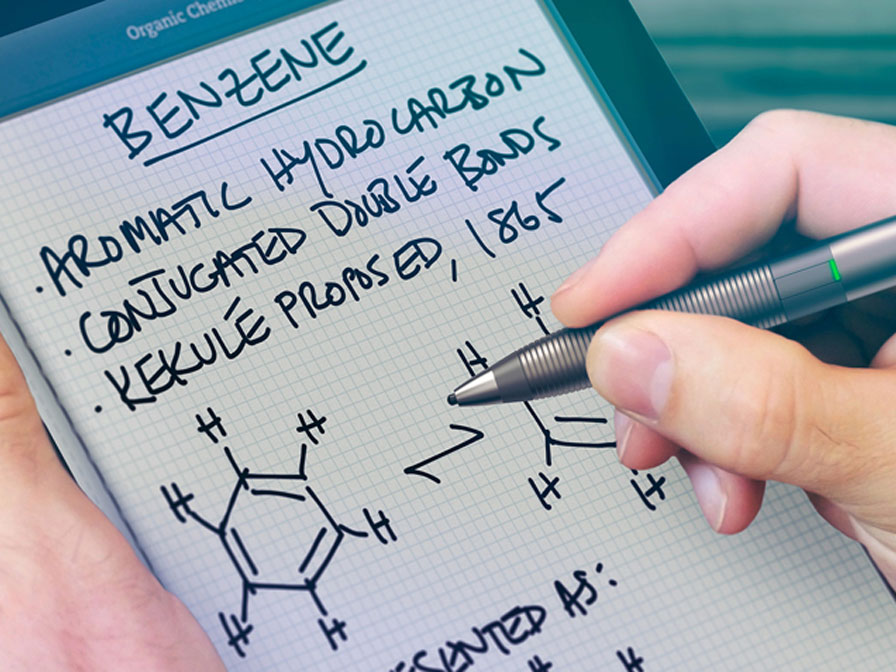 Organic
BENZENE
· AROMATIC HYDROCARBON
· CONJUGATED DOUBLE BONDS
· KEKULÉ PROPOSED, 1865
H
H
H H
H
H
H H
H
H H
AS:
H H